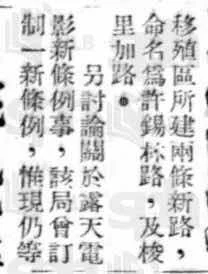 移殖區所建兩條新路，
命名爲許錫林路，及梭
里加路。
另討論關於露天電
影新條例事，該局曾訂
制一新條例，惟現仍等